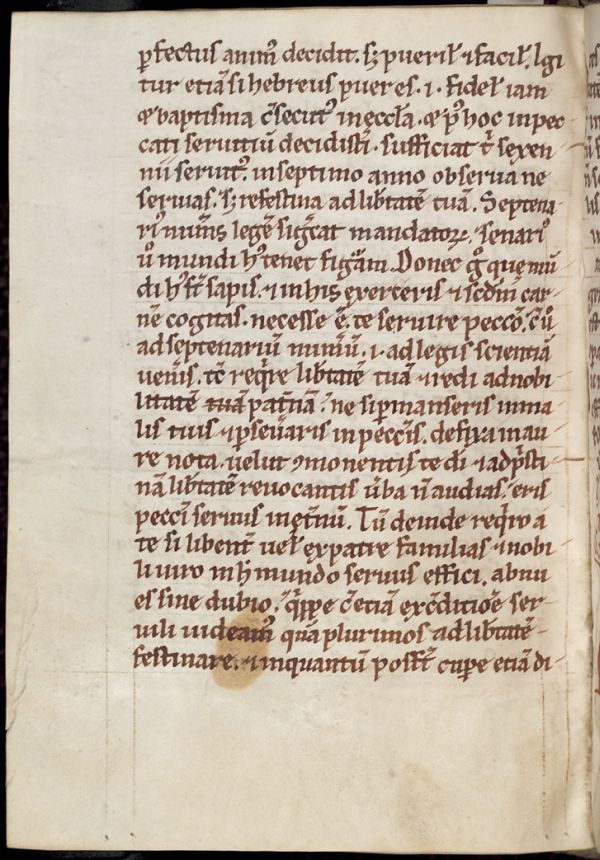 ꝑfectus animꝰ decidit. sꝫ pueril̵ ⁊ facil̵. Igi
tur etiā si hebreus puer es. i. fidel̵ iam
& baptisma c̄secutꝰ in ęccl̄a. & pꝰ hoc in pec
cati seruitiū decidisti. sufficiat t̄ sexen
nii seruitꝰ. in septimo anno obserua ne
seruias. sꝫ refestina ad lib̄tatē tuā. Septena
riꝰ nūmꝰ legē sig̅icat mandatorꝝ. senariꝰ
ū mundi hꝰ tenet figurā. Donec g̊ que mū
di hꝰ st̄ sapis. ⁊ in his exerceris ⁊ scd̄m car
ne cogitas. necesse ē. te seruire peccō. cū ů
ad septenariū num̄ū. i. ad legis scientiā
uen̄is. tc̄ reqͥre lib̄tatē tuā ⁊ redi ad nobi
litatē tuā pat̄nā. ne si ꝑmanseris in ma
lis tuis ⁊ ꝑseu̅aris in pecc̄is. defixa in au
re nota. uelut ꝯmonentis te dī ⁊ ad pͥsti
nā lib̄tatē reuocantis ūba n̄ audias. eris
pecc̄i seruus in ęt̄nū. Tū deinde reqͥro a
te si libent̄ uel̵ ex patre familias ⁊ nobi
li uiro in h̄ mundo seruus effici. abnu
es sine dubio. qͥppe c̄ etiā ex c̄ditiōe ser
uili uideamꝰ quā plurimos ad lib̄tatē
festinare. ⁊ inquantū poss̄t cupe etiā di